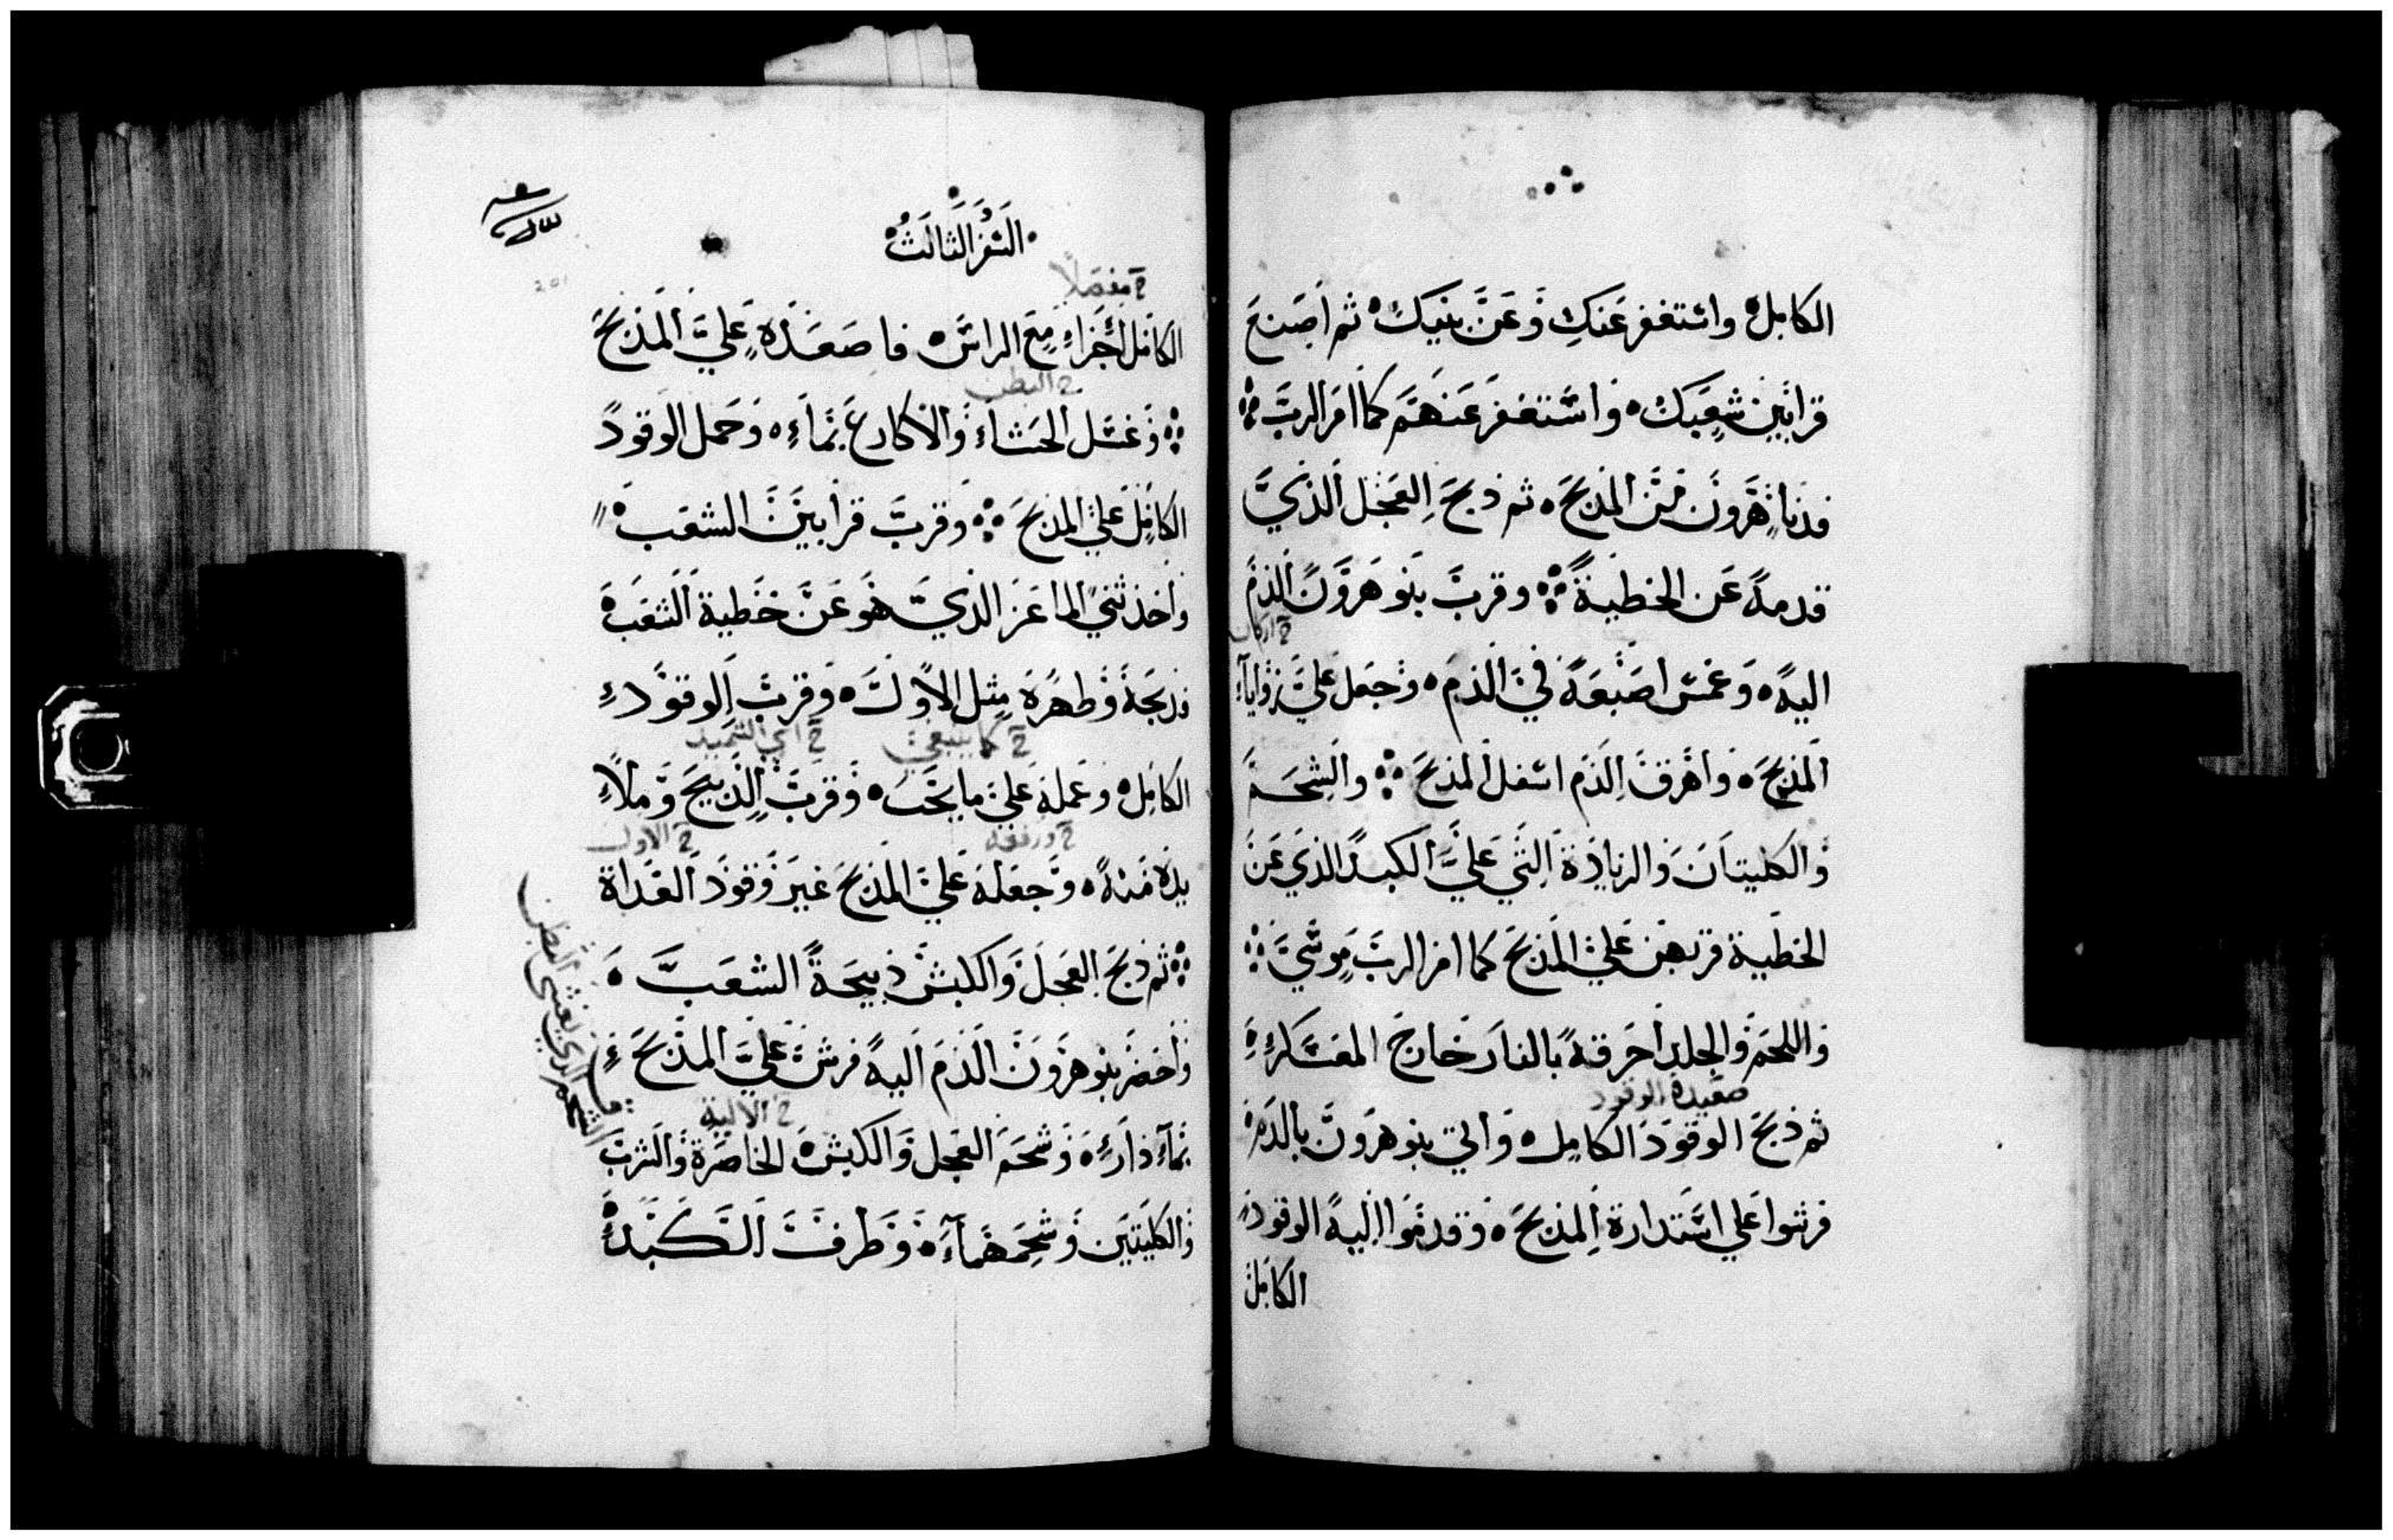 الكامل واستغفر عنك وعن بنيك ثم اصنع
قرابين شعبك واستغفر عنهم كما امر الرب
فدنا هرون من المذبح ثم ذبح العجل الذي
قدمه عن الخطية وقرب بنو هرون الدم
ارکان
اليه وغمس اصبعه في الدم وجعل علي زوايا
المذبح واهرق الدم اسفل المذبح والشحم
والكليتان والزيادة التي علي الكبد الذي عن
الخطية قربهن علي المذبح كما امر الرب موسي
واللحم والجلد احرقه بالنار خارج المعسكر
صعيدة الوقود
ثم ذبح الوقود الكامل واتي بنو هرون بالدم
فرشوا علي استدارة المذبح وقدموا اليه الوقود
الكامل
السفر الثالث
خ مفصلا
الكامل اجزاء مع الراس فاصعده علي المذبح
خ البطن
وغسل الحشاء والاكارع بماء وحمل الوقود
الكامل علي المذبح وقرب قرابين الشعب
واخذ ثني الماعز الذي هو عن خطية الشعب
فذبحه وطهره مثل الاول وقرب الوقود
خ كما ينبغي خ اي السميد
الكامل وعمله علي ما يجب وقرب الذبيح وملا
خ ورفعه خ الاول
يده منه وجعله علي المذبح غير وقود الغداة
ثم ذبح العجل والكبش ذبيحة الشعب
واحضر بنو هرون الدم اليه فرش علي المذبح
خ الالية
بما دار وشحم العجل والكبش الخاصرة والثرب
الشحم الذي يغشي البطن
والكليتين وشحمهما وطرف الكبد